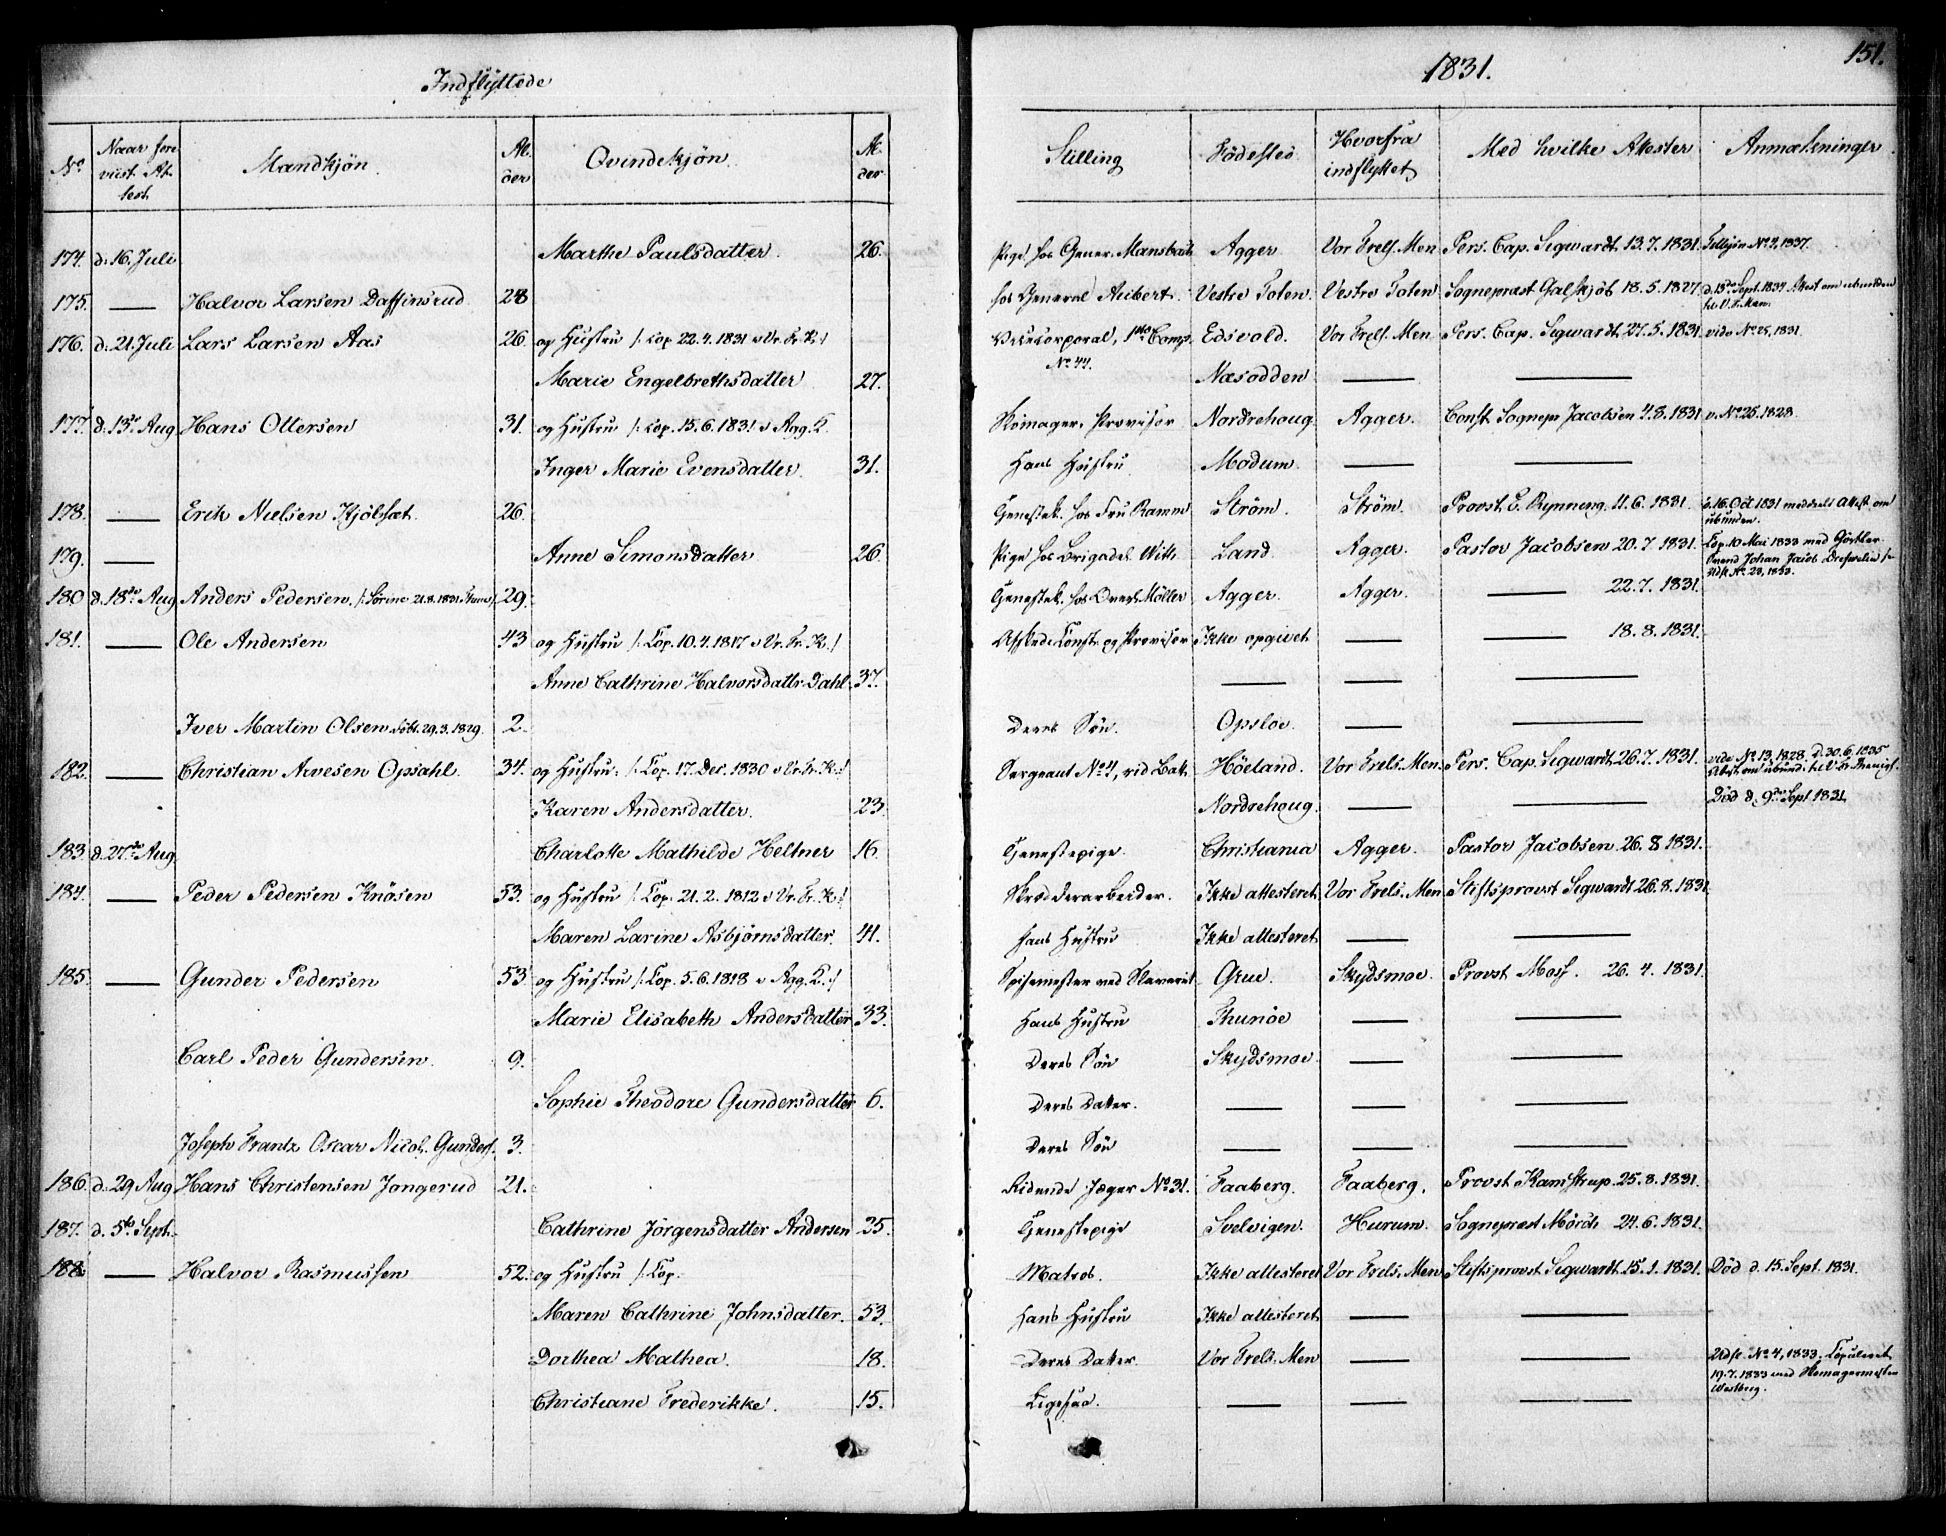 Indflyttede
1831.
151.
No Naar forevist Attest Mandkjøn Alder Qvindekjøn. Alder Stilling Fødested Hvorfra indflyttet Med hvilke Attester Anmærkninger
174. d. 16. Juli Marthe Paulsdatter. 26. Pige hos Gener. Mansbach Agger Vor Frels. Men Pers. Cap. Sigwardt 13.7.1831.
175. — Halvor Larsen Daffinsrud 28 hos General Aubert. Vestre Toten. Vestre Toten Sognepræst Galskjöt 18.5.1827. d. 15de Sept. 1834 Attest om ubunden
176. d. 21. Juli Lars Larsen Aas 26. og Hustru /: Cop. 22.4.1831 i Vr. Fr. K:/ Vicecorporal, 1ste Comp. No 44. Edsvold. Vor Frels. Men Pers. Cap. Sigwardt 27.5.1831. vide No 25, 1831.
Marie Engelbrethsdatter 27. Næsodden — —
177. d. 13de Aug Hans Ottersen 31. og Hustru /: Cop. 15.6.1831 i Agg. K. Skomager, Provisor Nordrehoug Agger. Const. Sognepr Jacobsen 4.8.1831 v. No 25. 1828
Inger Marie Evensdatter. 31. Hans Hustru Modum. — —
178. — Erik Nielsen Kjölsæt 26. Tjenestek. hos Fru Ramm Ström. Ström. Provst E. Rynning. 11.6.1831. d. 16. Oct 1831 meddeelt Attest om ubunden.
179. — Anne Simonsdatter 26. Pige hos Brigadel. Witt Land Agger. Pastor Jacobsen 20.7.1831. Cop. 10 Mai 1833 med Görtler Svend Johan Jacob
180 d. 18de Aug Anders Pedersen 29. Tjenestek. hos Overl. Möller Agger. Agger. — 22.7.1831.
181. — Ole Andersen 43 og Hustru /: Cop. 10.4.1817 i Vr. Fr. K:/ Afskediget Const. og Provisor Ikke opgivet — — 18.8.1831.
Anne Cathrine Halvorsdattr. Dahl. 37. — — —
Iver Martin Olsen döbt. 29.3.1829. 2. Deres Sön Opsloe. — —
182. — Christian Arvesen Opsahl. 34. og Hustru. /: Cop. 17. Dec. 1830 i Vr. Fr. K:/ Sergeant No 4, rid. Bat. Höeland. Vor Frels. Men. Pers. Cap. Sigwardt 26.7.1831. vide No 13, 1828. d. 30.6.1835
Karen Andersdatter. 23. Nordrehoug. — — Död d. 9de Sept 1831.
183. d. 27de Aug. Charlotte Mathilde Heltner 16. Tjenestepige. Christiania Agger. Pastor Jacobsen. 26.8 1831.
184. — Peder Pedersen Knösen 53. og Hustru /: Cop. 21.2.1812 i Vr. Fr. K:/ Skrædderarbeider. Ikke attesteret Vor Frels. Men Stiftsprovst Sigwardt 26.8.1831
Maren Larine Asbjörnsdatter. 41. Hans Hustru Ikke attesteret — —
185. — Gunder Pedersen 53 og Hustru /: Cop. 5.6.1818 i Agg. K:/ Spisemester ved Slaveriet Grue. Skydsmoe. Provst Moss. 26.4.1831.
Marie Elisabeth Andersdatter 33. Hans Hustru Thunöe — —
Carl Peder Gundersen. 9. Deres Sön Skydsmoe. — —
Sophie Theodore Gundersdatter 6. Deres Datter. — — —
Joseph Frantz Oscar Nicol. Gunders. 3. Deres Sön — — —
186. d. 29 Aug Hans Christensen Jongerud 21. Ridende Jæger No 31. Faaberg. Faaberg. Provst Kamstrup. 25.8.1831.
187. d. 5te Sept. Cathrine Jörgensdatter Andersen 35. Tjenestepige Svelvigen. Hurum. Sognepræst Mörch 24.6.1831.
188. — Halvor Rasmussen 52. og Hustru /: Cop. Matros. Ikke attesteret Vor Frels. Men Stiftsprovst Sigwardt 15.1.1831. Död d. 15. Sept. 1831.
Maren Cathrine Johnsdatter. 53. Hans Hustru Ikke attesteret — —
Dorthea Mathea. 18. Deres Datter. Vor Frels. Men — — Udfl. No 4, 1833. Copuleret 19.7.1833 med Skomagermester Westberg.
Christiane Frederikke. 15. Ligesaa. — — —